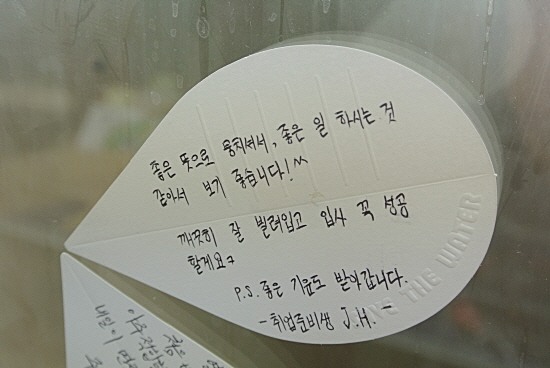 좋은 뜻으로 뭉치셔서, 좋은 일 하시는 것
같아서 보기 좋습니다!^^
깨끗히 잘 빌려입고 입사 꼭 성공
할게요ㅋ
P.S. 좋은 기운도 받아갑니다.
-취업준비생 J.H.-
THE WATER
아주
내일이